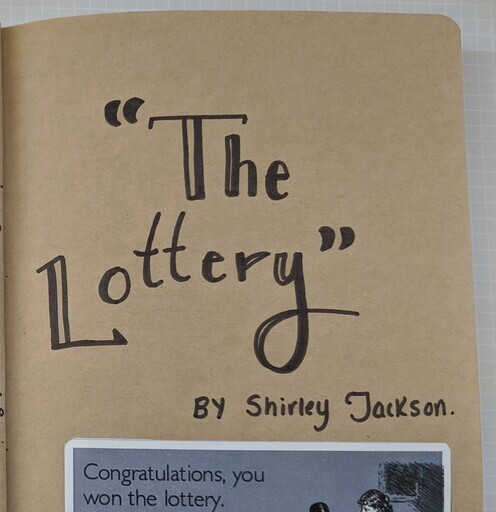 “The
Lottery”
BY Shirley Jackson.
Congratulations, you
won the lottery.